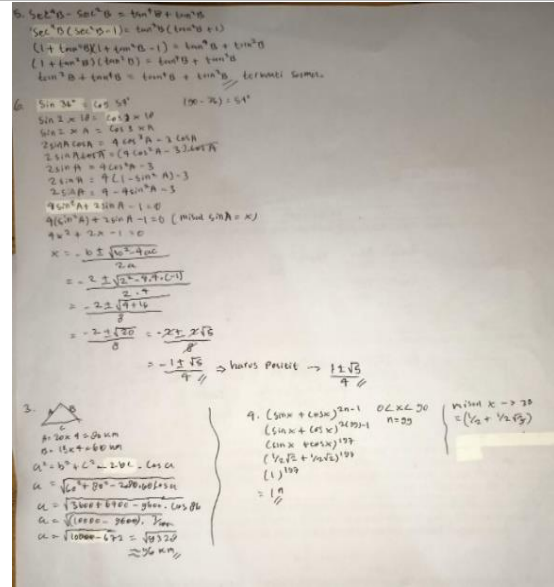 5. Sec⁴B - Sec²B = tan⁴B + tan²B
Sec²B (Sec²B - 1) = tan²B (tan²B + 1)
(1 + tan²B)(1 + tan²B - 1) = tan⁴B + tan²B
(1 + tan²B)(tan²B) = tan⁴B + tan²B
tan²B + tan⁴B = tan⁴B + tan²B // terbukti
6. Sin 36° = Cos 54° (90 - 36) = 54°
Sin 2 x 18 = Cos 3 x 18
Sin 2 x A = Cos 3 x A
2 sin A cos A = 4 cos³A - 3 cos A
2 sin A cos A = (4 cos²A - 3) cos A
2 sin A = 4 cos²A - 3
2 sin A = 4(1 - sin²A) - 3
2 sin A = 4 - 4 sin²A - 3
4 sin²A + 2 sin A - 1 = 0
4(sin²A) + 2 sin A - 1 = 0 (misal sin A = x)
4x² + 2x - 1 = 0
x = -b ± √b² - 4ac / 2a
= -2 ± √2² - 4.4.(-1) / 2.4
= -2 ± √4 + 16 / 8
= -2 ± √20 / 8 = -2 ± 2√5 / 8
= -1 ± √5 / 4 // → harus positif → 1 ± √5 / 4 //
3. A B
C
A = 20 x 4 = 80 km
B = 15 x 4 = 60 km
a² = b² + c² - 2bc . cos a
a = √60² + 80² - 2.80.60 cos a
a = √3600 + 6400 - 9600 . cos 86
a = √(10000 - 9600) .
a = √10000 - 672 = √9328
≈ 96 km //
4. (sin x + cos x)²ⁿ⁻¹ 0 < x < 90
(sin x + cos x)²⁽⁹⁹⁾⁻¹ n = 99
(sin x + cos x)¹⁹⁷
(1/2√2 + 1/2√2)¹⁹⁷
(1)¹⁹⁷
= 1ⁿ //
misal x → 30
= (1/2 + 1/2√3)